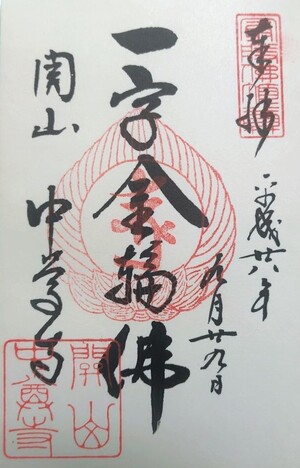 奉拝
平成廿六年
九月廿九日
一字金輪佛
関山
中尊寺
関山
中尊寺